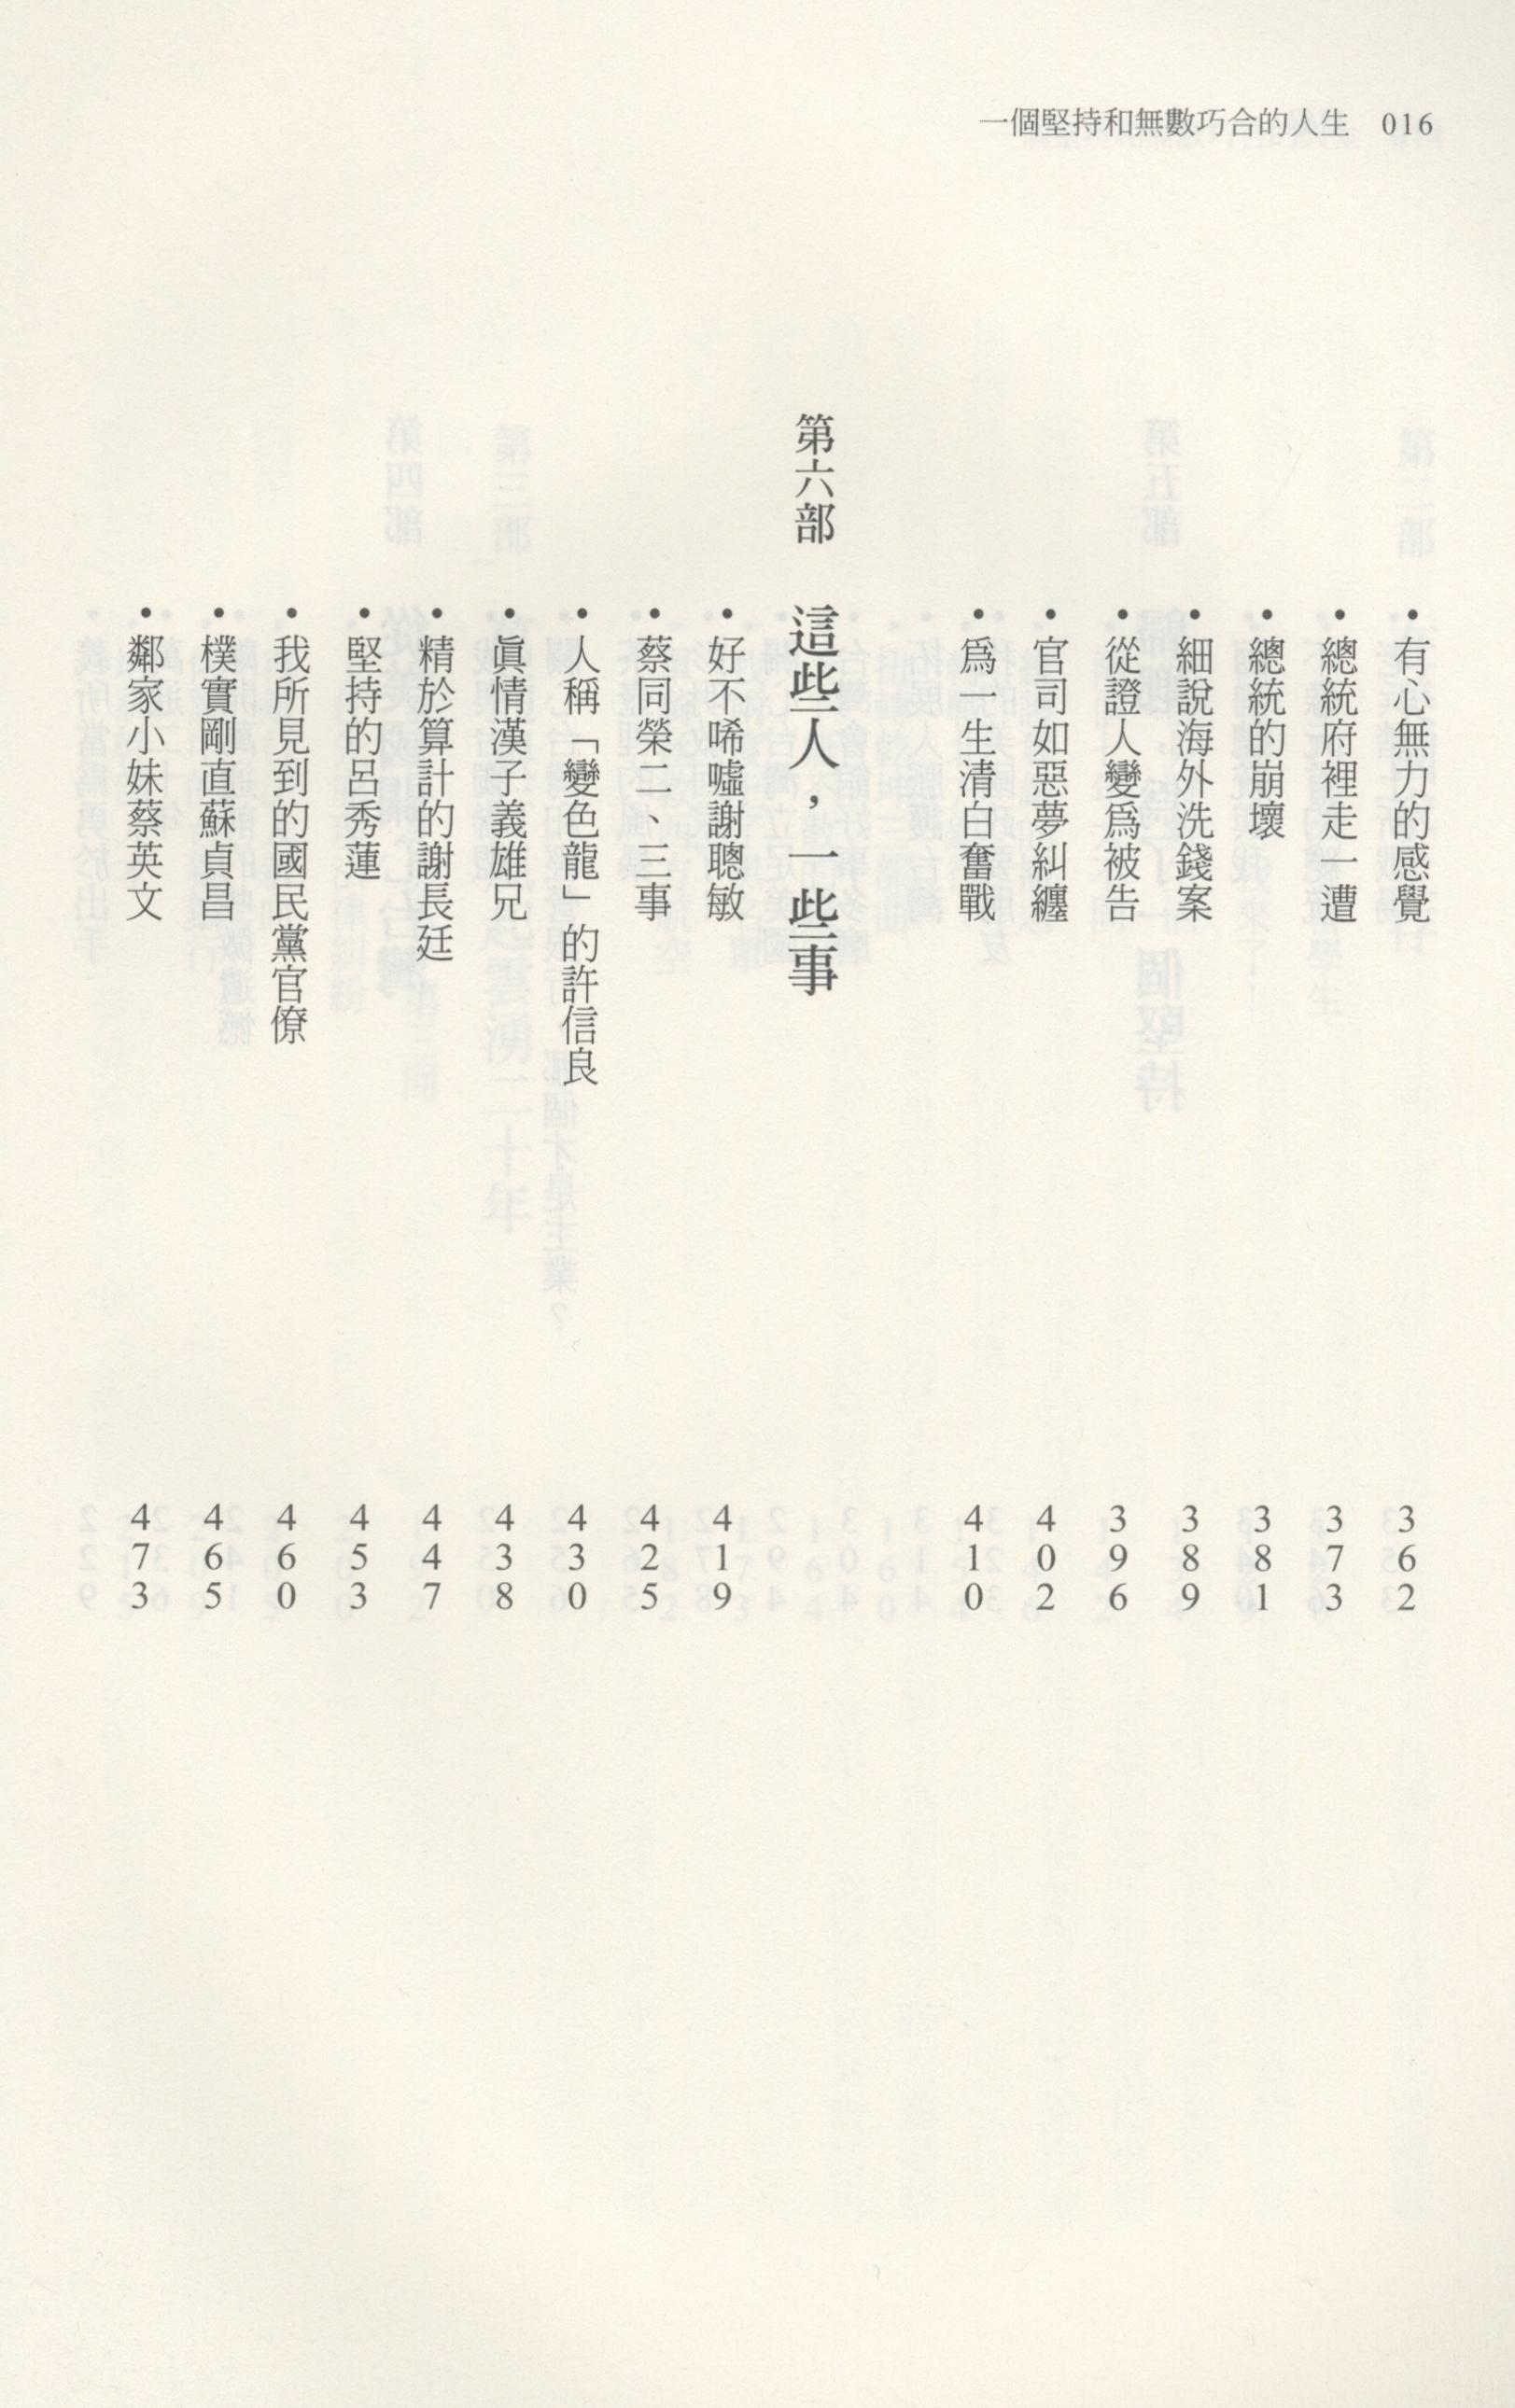 一個堅持和無數巧合的人生 016
•有心無力的感覺 362
•總統府裡走一遭 373
•總統的崩壞 381
•細說海外洗錢案 389
•從證人變爲被告 396
•官司如惡夢糾纏 402
•爲一生清白奮戰 410
第六部 這些人，一些事
•好不唏噓謝聰敏 419
•蔡同榮二、三事 425
•人稱「變色龍」的許信良 430
•眞情漢子義雄兄 438
•精於算計的謝長廷 447
•堅持的呂秀蓮 453
•我所見到的國民黨官僚 460
•樸實剛直蘇貞昌 465
•鄰家小妹蔡英文 473